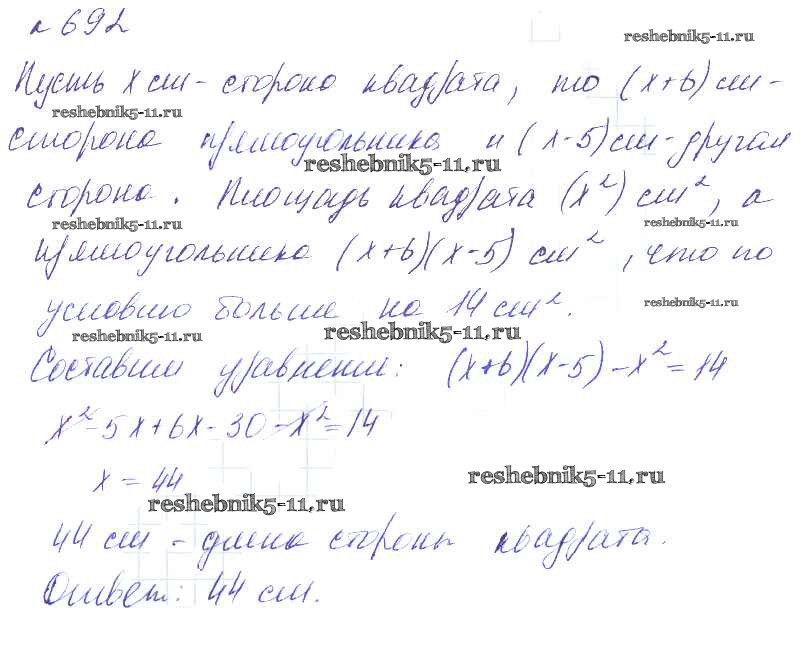 № 692
reshebnik5-11.ru
Пусть x см - сторона квадрата, то (x+6) см -
reshebnik5-11.ru
сторона прямоугольника и (x-5) см - другая
reshebnik5-11.ru
сторона. Площадь квадрата (x²) см², а
reshebnik5-11.ru reshebnik5-11.ru
прямоугольника (x+6)(x-5) см², что по
условию больше на 14 см².
reshebnik5-11.ru
reshebnik5-11.ru reshebnik5-11.ru
Составим уравнение: (x+6)(x-5) - x² = 14
x² - 5x + 6x - 30 - x² = 14
x = 44
reshebnik5-11.ru
reshebnik5-11.ru
44 см - длина стороны квадрата.
Ответ: 44 см.